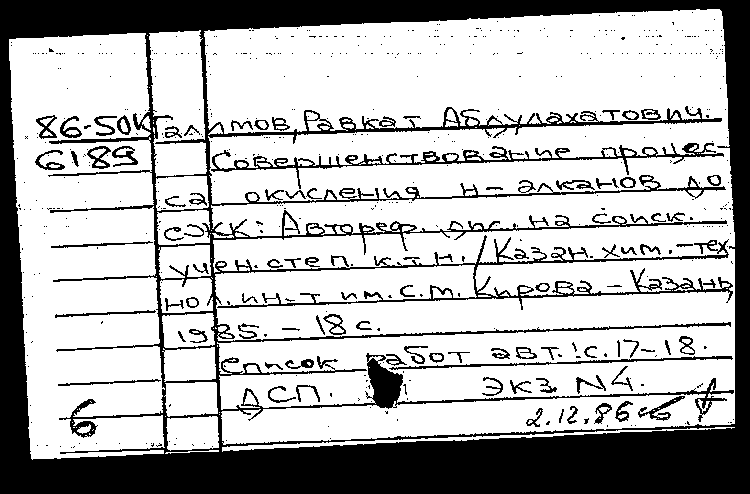 86-50К Галимов, Равкат Абдулахатович.
6189 Совершенствование процес-
са окисления н-алканов до
СЖК: Автореф. дис. на соиск.
учен. степ. к.т.н. / Казан. хим.-тех-
нол. ин-т им. С.М. Кирова. - Казань,
1985. - 18 с.
Список работ авт.: с. 17-18.
ДСП. экз. N4.
6 2.12.86